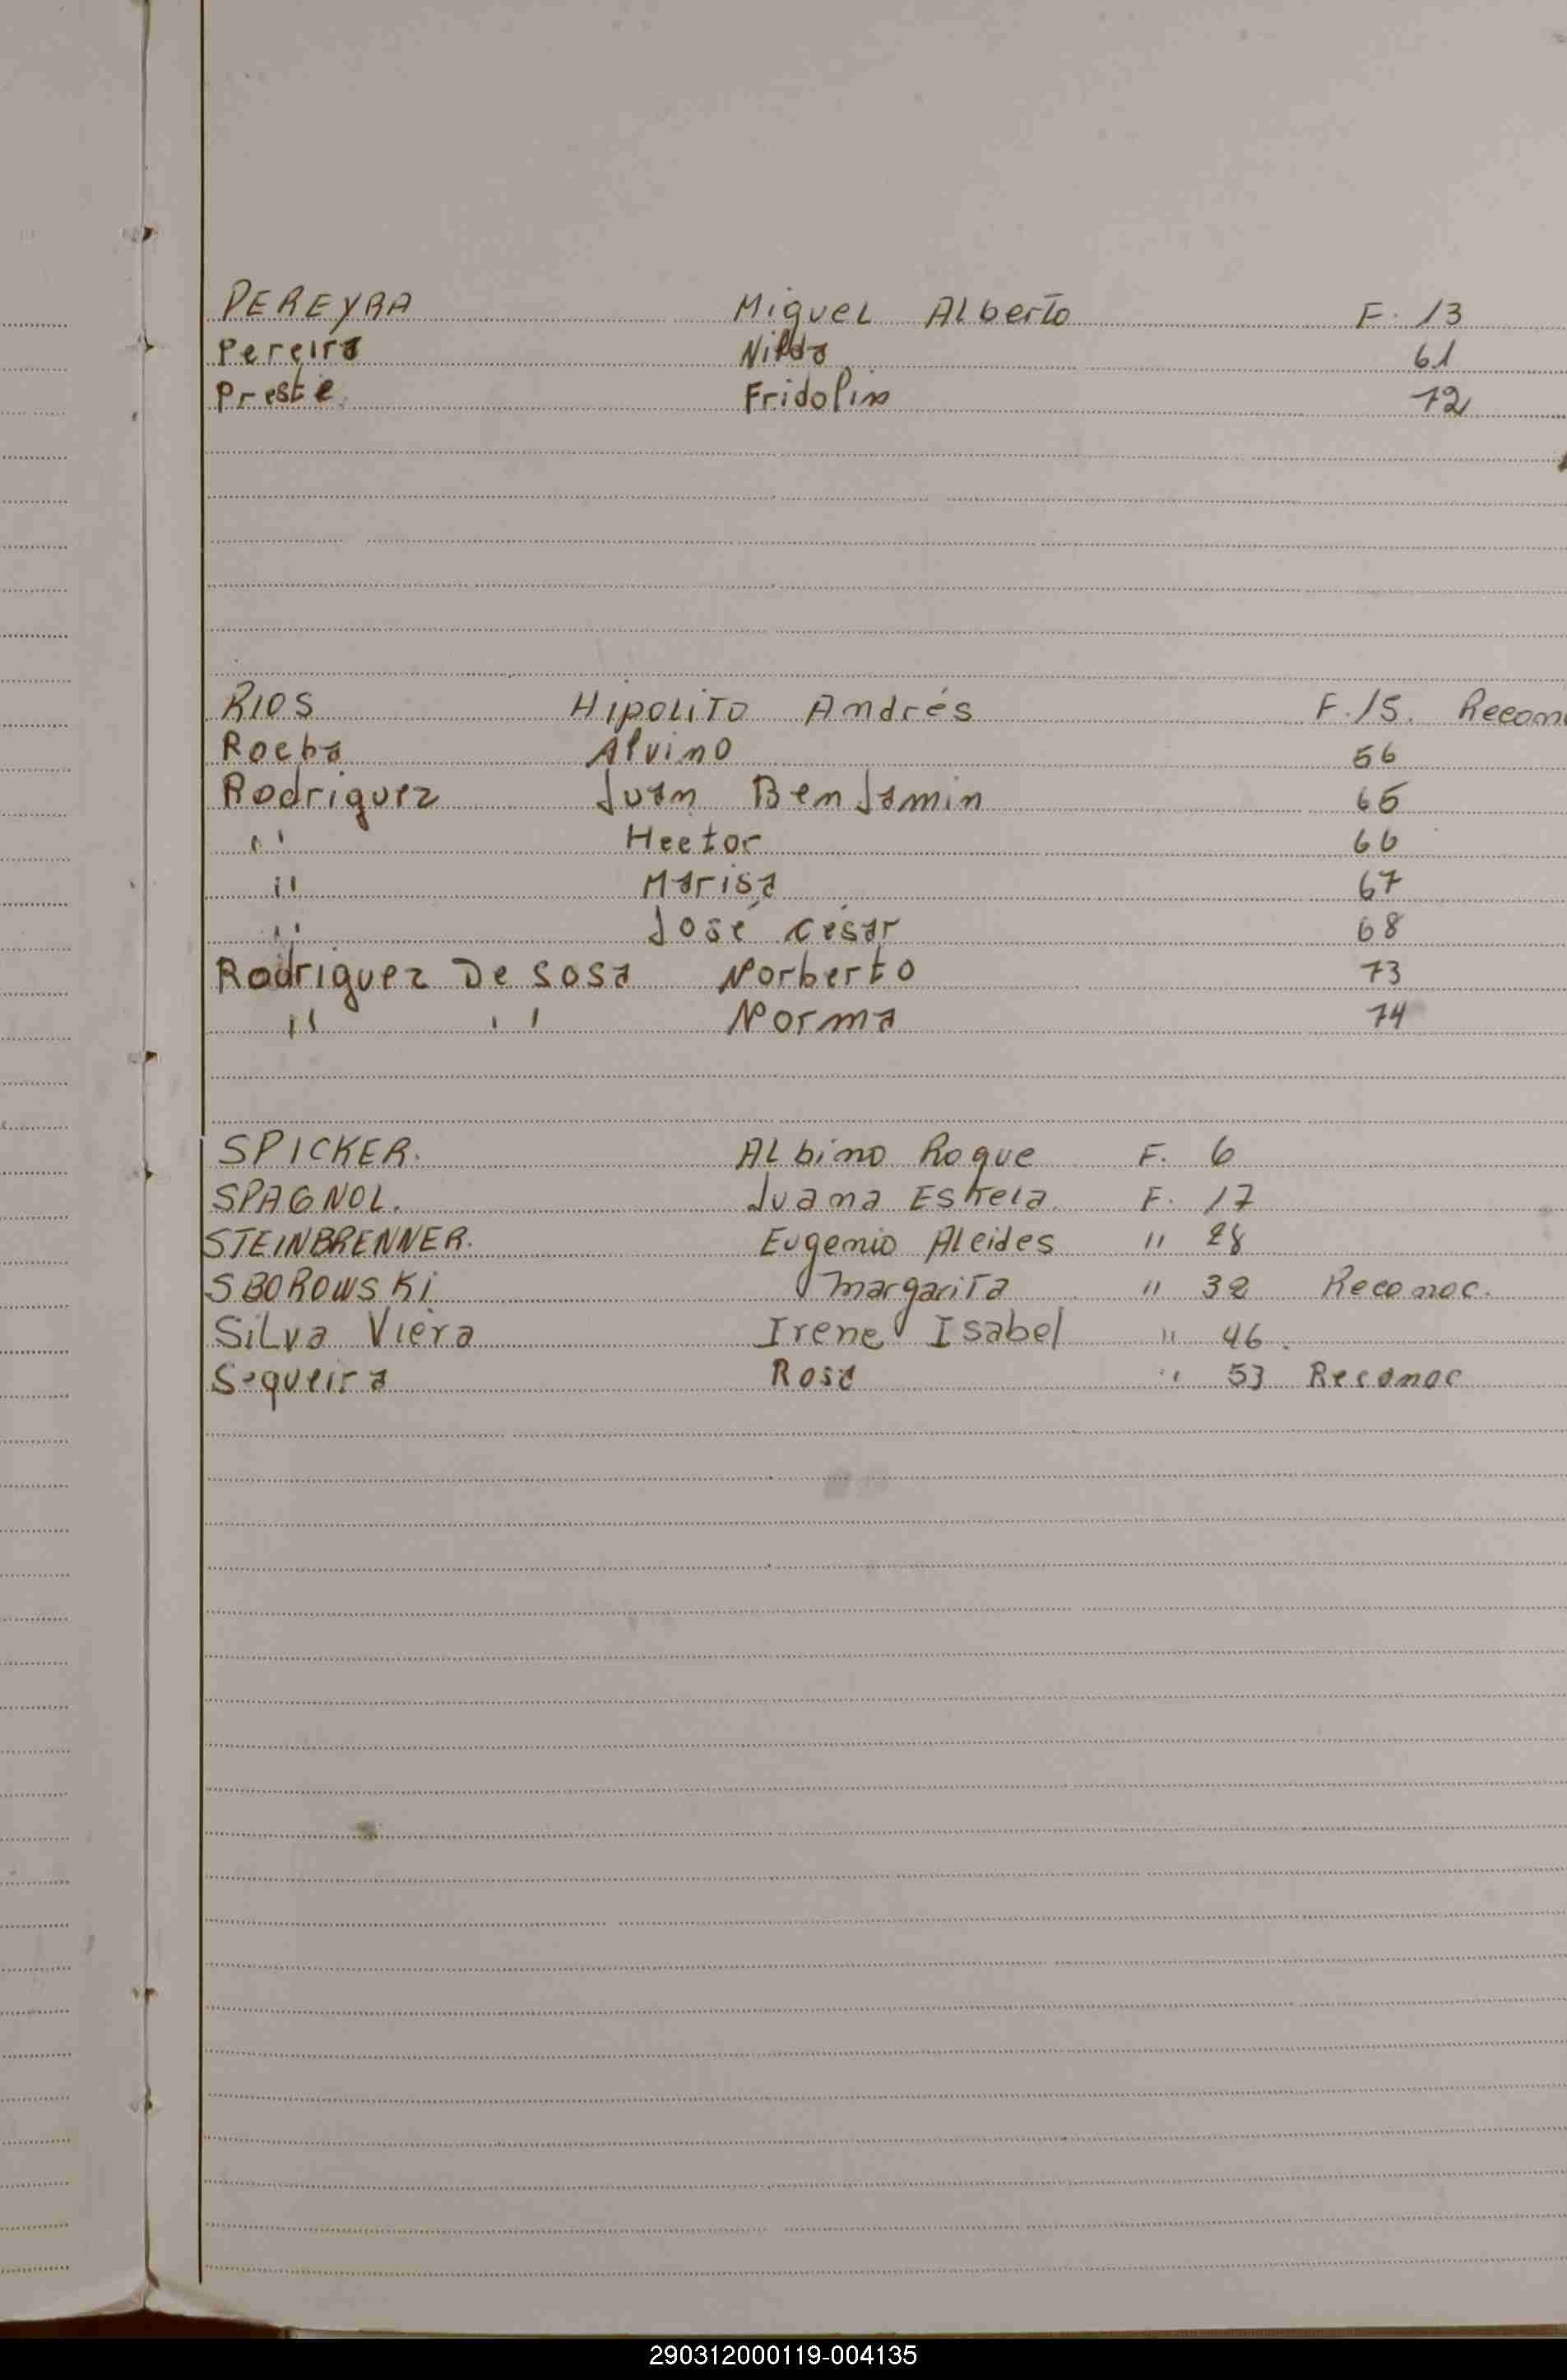 PEREYRA Miguel Alberto F. 13
Pereira Nilda 61
Preste Fridolin 72
RIOS Hipolito Andrés F. 15. Recon
Rocha Alvino 56
Rodriguez Juan Benjamin 65
" Hector 66
" Marisa 67
" José César 68
Rodriguez De Sosa Norberto 73
" " Norma 74
SPICKER. Albino Roque F. 6
SPAGNOL. Juana Estrela. F. 17
STEINBRENNER. Eugenio Alcides " 28
SBOROWSKI Margarita " 32 Reconoc.
Silva Viera Irene Isabel " 46.
Sequeira Rosa " 53 Reconoc
290312000119-004135